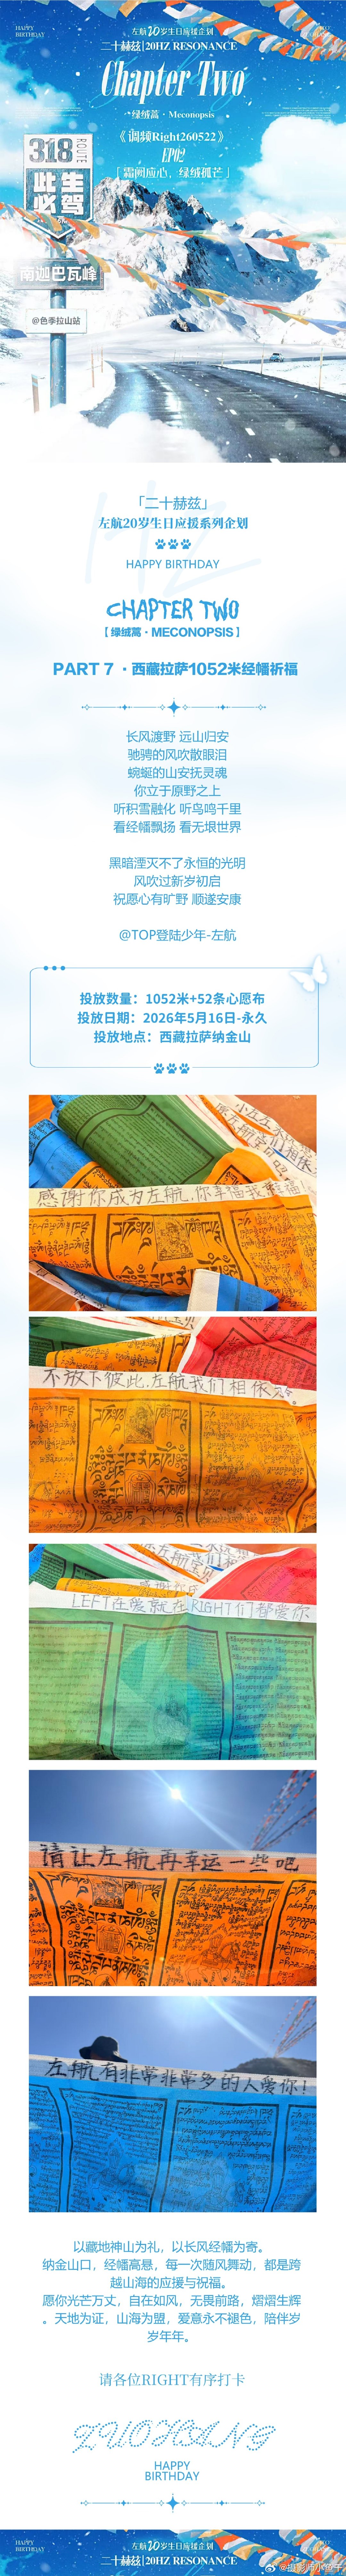 HAPPY
BIRTHDAY
左航20岁生日应援企划
二十赫兹|20HZ RESONANCE
Chapter Two
绿绒蒿·Meconopsis
《调频Right260522》
EP02
「霜阙应心，绿绒孤芒」
318
ROUTE
此生
必驾
南迦巴瓦峰
@色季拉山站
「二十赫兹」
左航20岁生日应援系列企划
HAPPY BIRTHDAY
CHAPTER TWO
【绿绒蒿·MECONOPSIS】
PART 7 ·西藏拉萨1052米经幡祈福
长风渡野 远山归安
驰骋的风吹散眼泪
蜿蜒的山安抚灵魂
你立于原野之上
听积雪融化 听鸟鸣千里
看经幡飘扬 看无垠世界
黑暗湮灭不了永恒的光明
风吹过新岁初启
祝愿心有旷野 顺遂安康
@TOP登陆少年-左航
投放数量：1052米+52条心愿布
投放日期：2026年5月16日-永久
投放地点：西藏拉萨纳金山
感谢你成为左航,你幸福我
不放下彼此.左航我们相依
LEFT在哪就在RIGHT们都爱你
请让左航再幸运一些吧
左航有非常非常多的人爱你！
以藏地神山为礼，以长风经幡为寄。
纳金山口，经幡高悬，每一次随风舞动，都是跨
越山海的应援与祝福。
愿你光芒万丈，自在如风，无畏前路，熠熠生辉
。天地为证，山海为盟，爱意永不褪色，陪伴岁
岁年年。
请各位RIGHT有序打卡
ZUOHANG
HAPPY
BIRTHDAY
HAPPY
BIRTHDAY
左航20岁生日应援企划
二十赫兹|20HZ RESONANCE